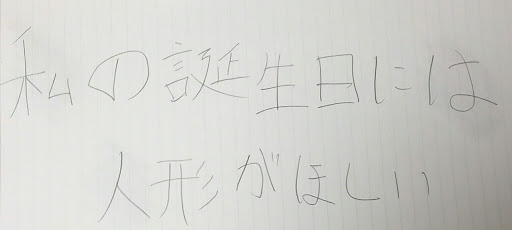 私の誕生日には
人形がほしい